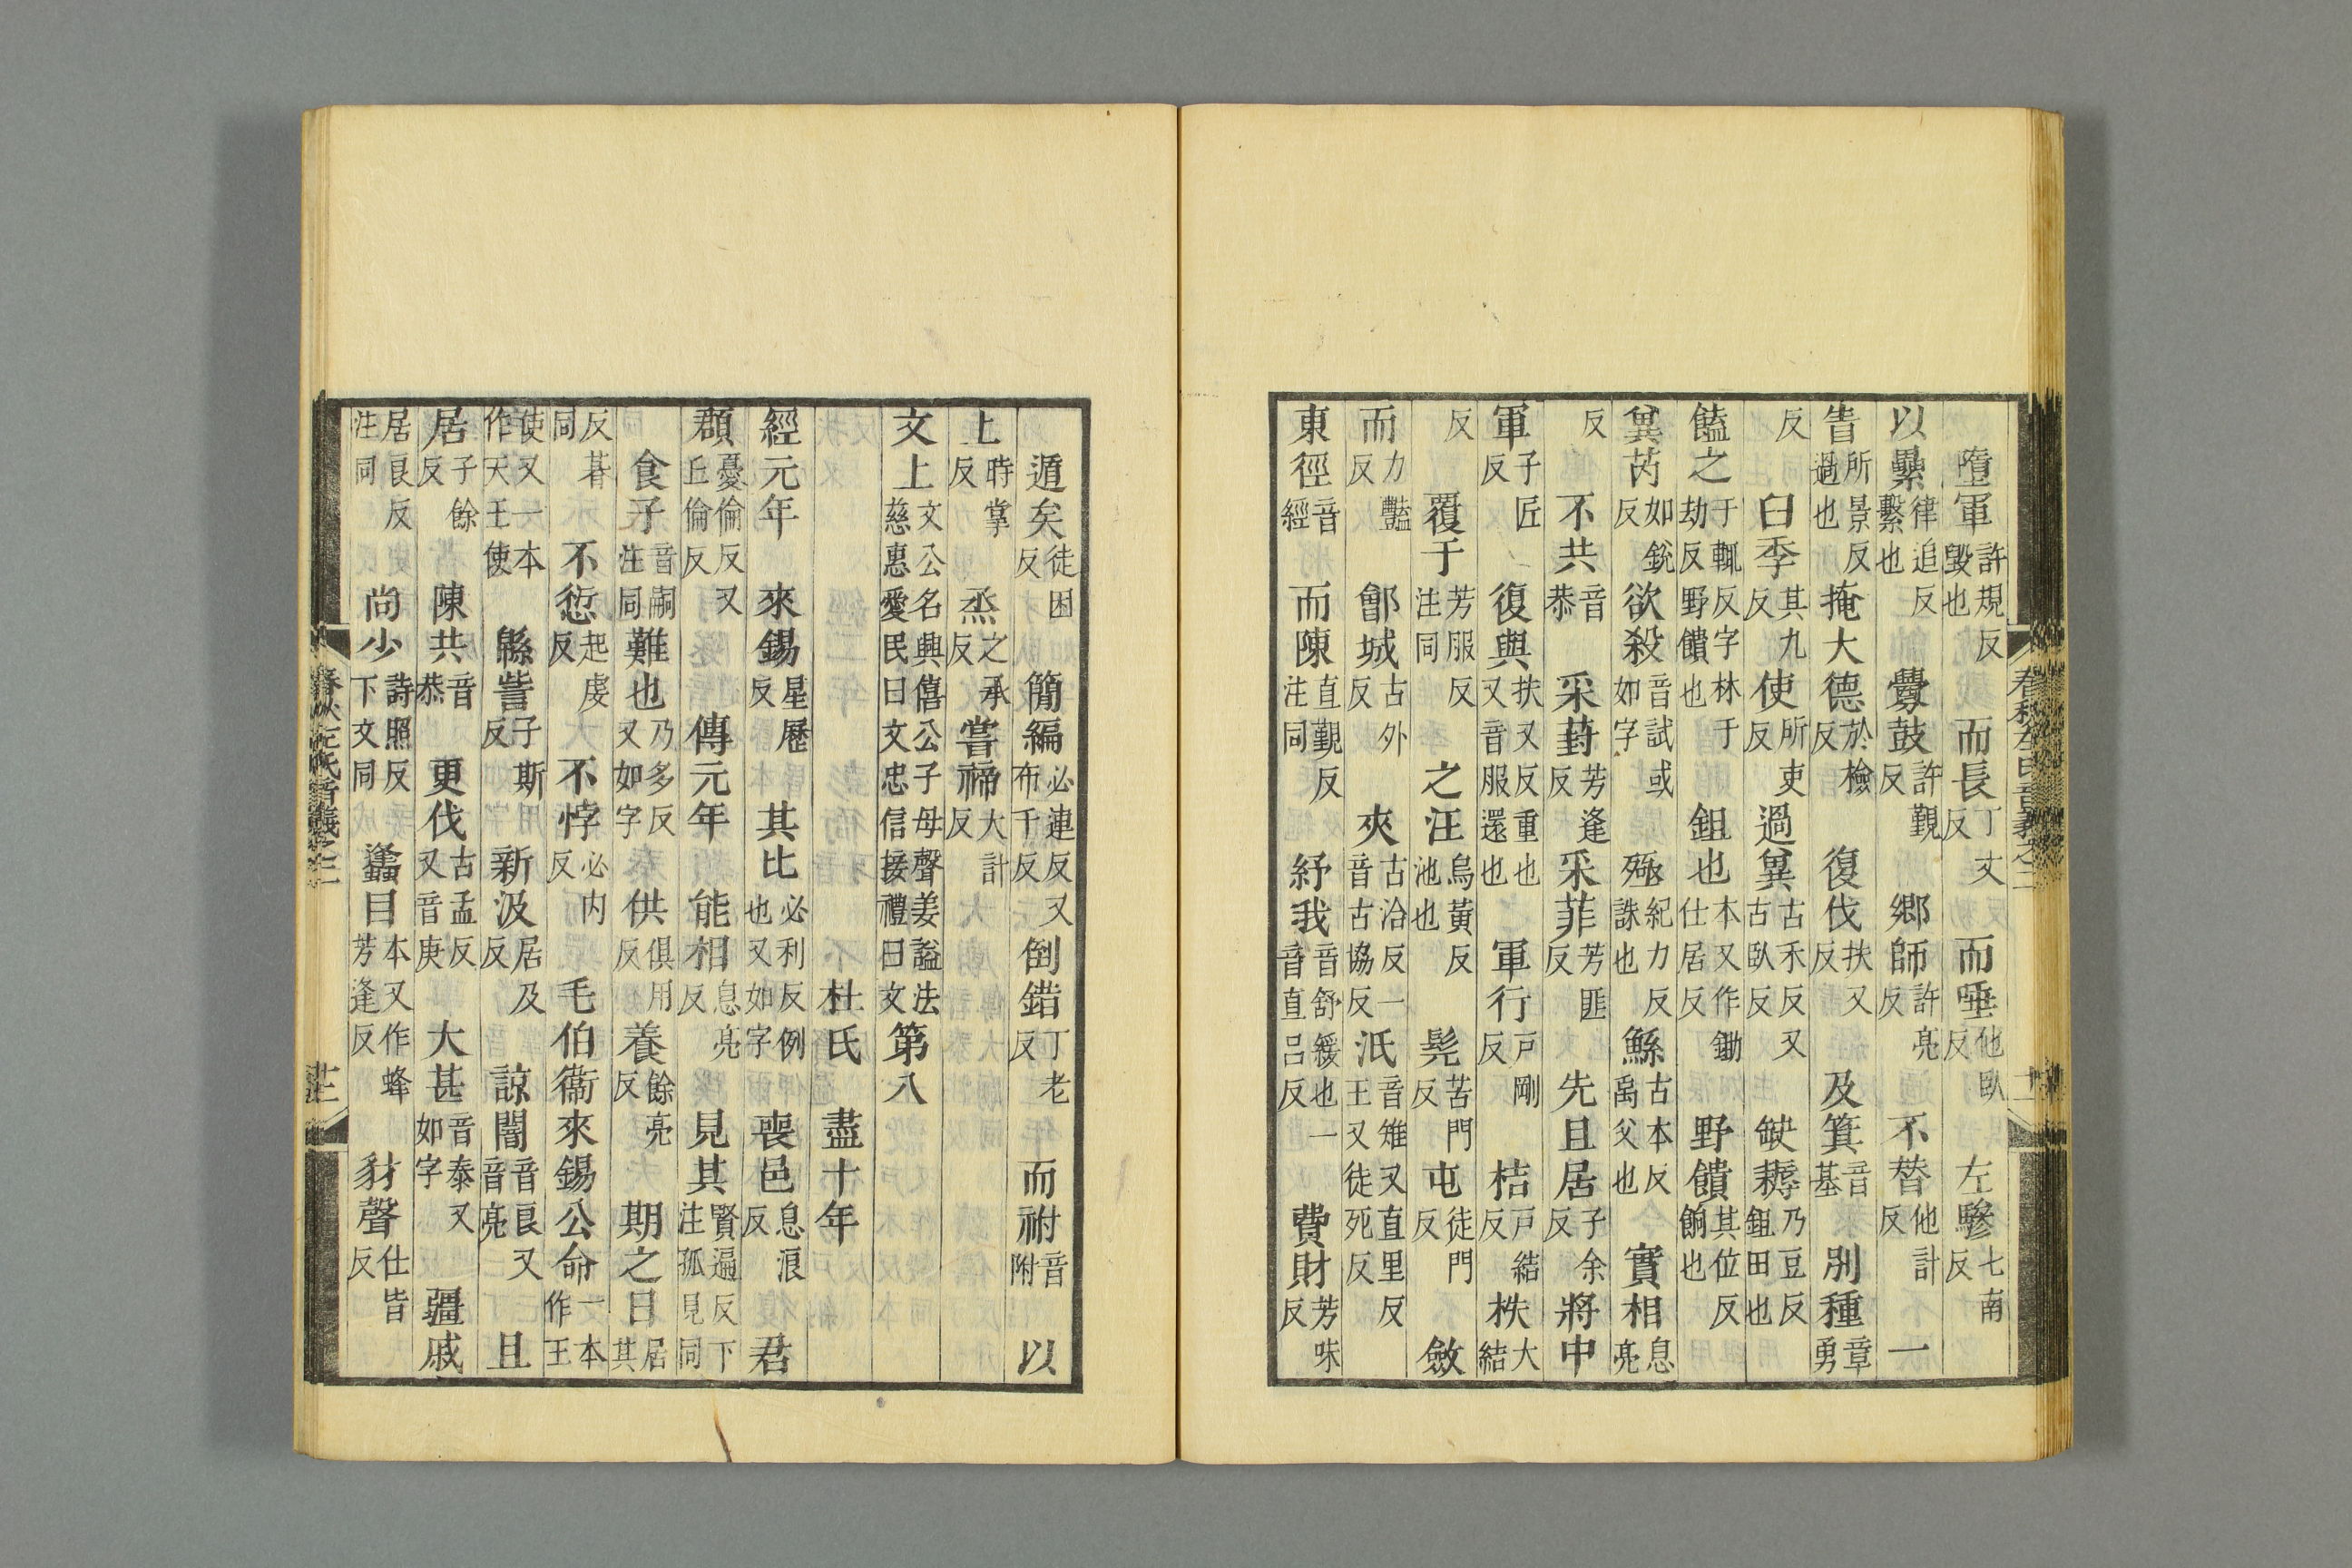 墮軍許規反毀也　而長丁丈反　而唾他臥反　左驂七南反
以纍律追反繫也　釁鼓許覲反　鄉師許亮反　不替他計反　一
眚所景反過也　掩大德於檢反　復伐扶又反　及箕音基　別種章勇
反　臼季其九反　使所吏反　過兾古禾反又古臥反　缺耨乃豆反鉏田也
饁之于輒反字林于劫反野饋也　鉏也本又作鋤仕居反　野饋其位反餉也
兾芮如銳反　欲殺音試或如字　殛紀力反誅也　鯀古本反禹父也　實相息亮
反　不共音恭　采葑芳逢反　采菲芳匪反　先且居子余反　將中
軍子匠反　復與扶又反重也又音服還也　軍行戶剛反　桔戶結反　柣大結
反　覆于芳服反注同　之汪烏黃反池也　髡苦門反　屯徒門反　斂
而力豔反　鄶城古外反　夾古洽反一音古協反　泜音雉又直里反王又徒死反
東徑音經　而陳直覲反注同　紓我音舒緩也一音直呂反　費財芳味反
春秋左氏音義之二
遁矣徒困反　簡編必連反又布千反　倒錯丁老反　而祔音附　以
上時掌反　烝之承反　嘗禘大計反
文上文公名興僖公子母聲姜謚法慈惠愛民曰文忠信接禮曰文　第八
杜氏　盡十年
經元年　來錫星歷反　其比必利反例也又如字　喪邑息浪反　君
頵憂倫反又丘倫反　傳元年　能相息亮反　見其賢遍反下注孤見同
食子音嗣注同　難也乃多反又如字　供俱用反　養餘亮反　期之日居其
反　不愆起虔反　不悖必内反　毛伯衞來錫公命一本作王
使又一本作天王使　緜訾子斯反　新汲居及反　諒闇音良又音亮　且
居子餘反　陳共音恭　更伐古孟反又音庚　大甚音泰又如字　疆戚
居良反注同　尚少詩照反下文同　蠭目本又作蜂芳逢反　豺聲仕皆反
春秋左氏音義之二